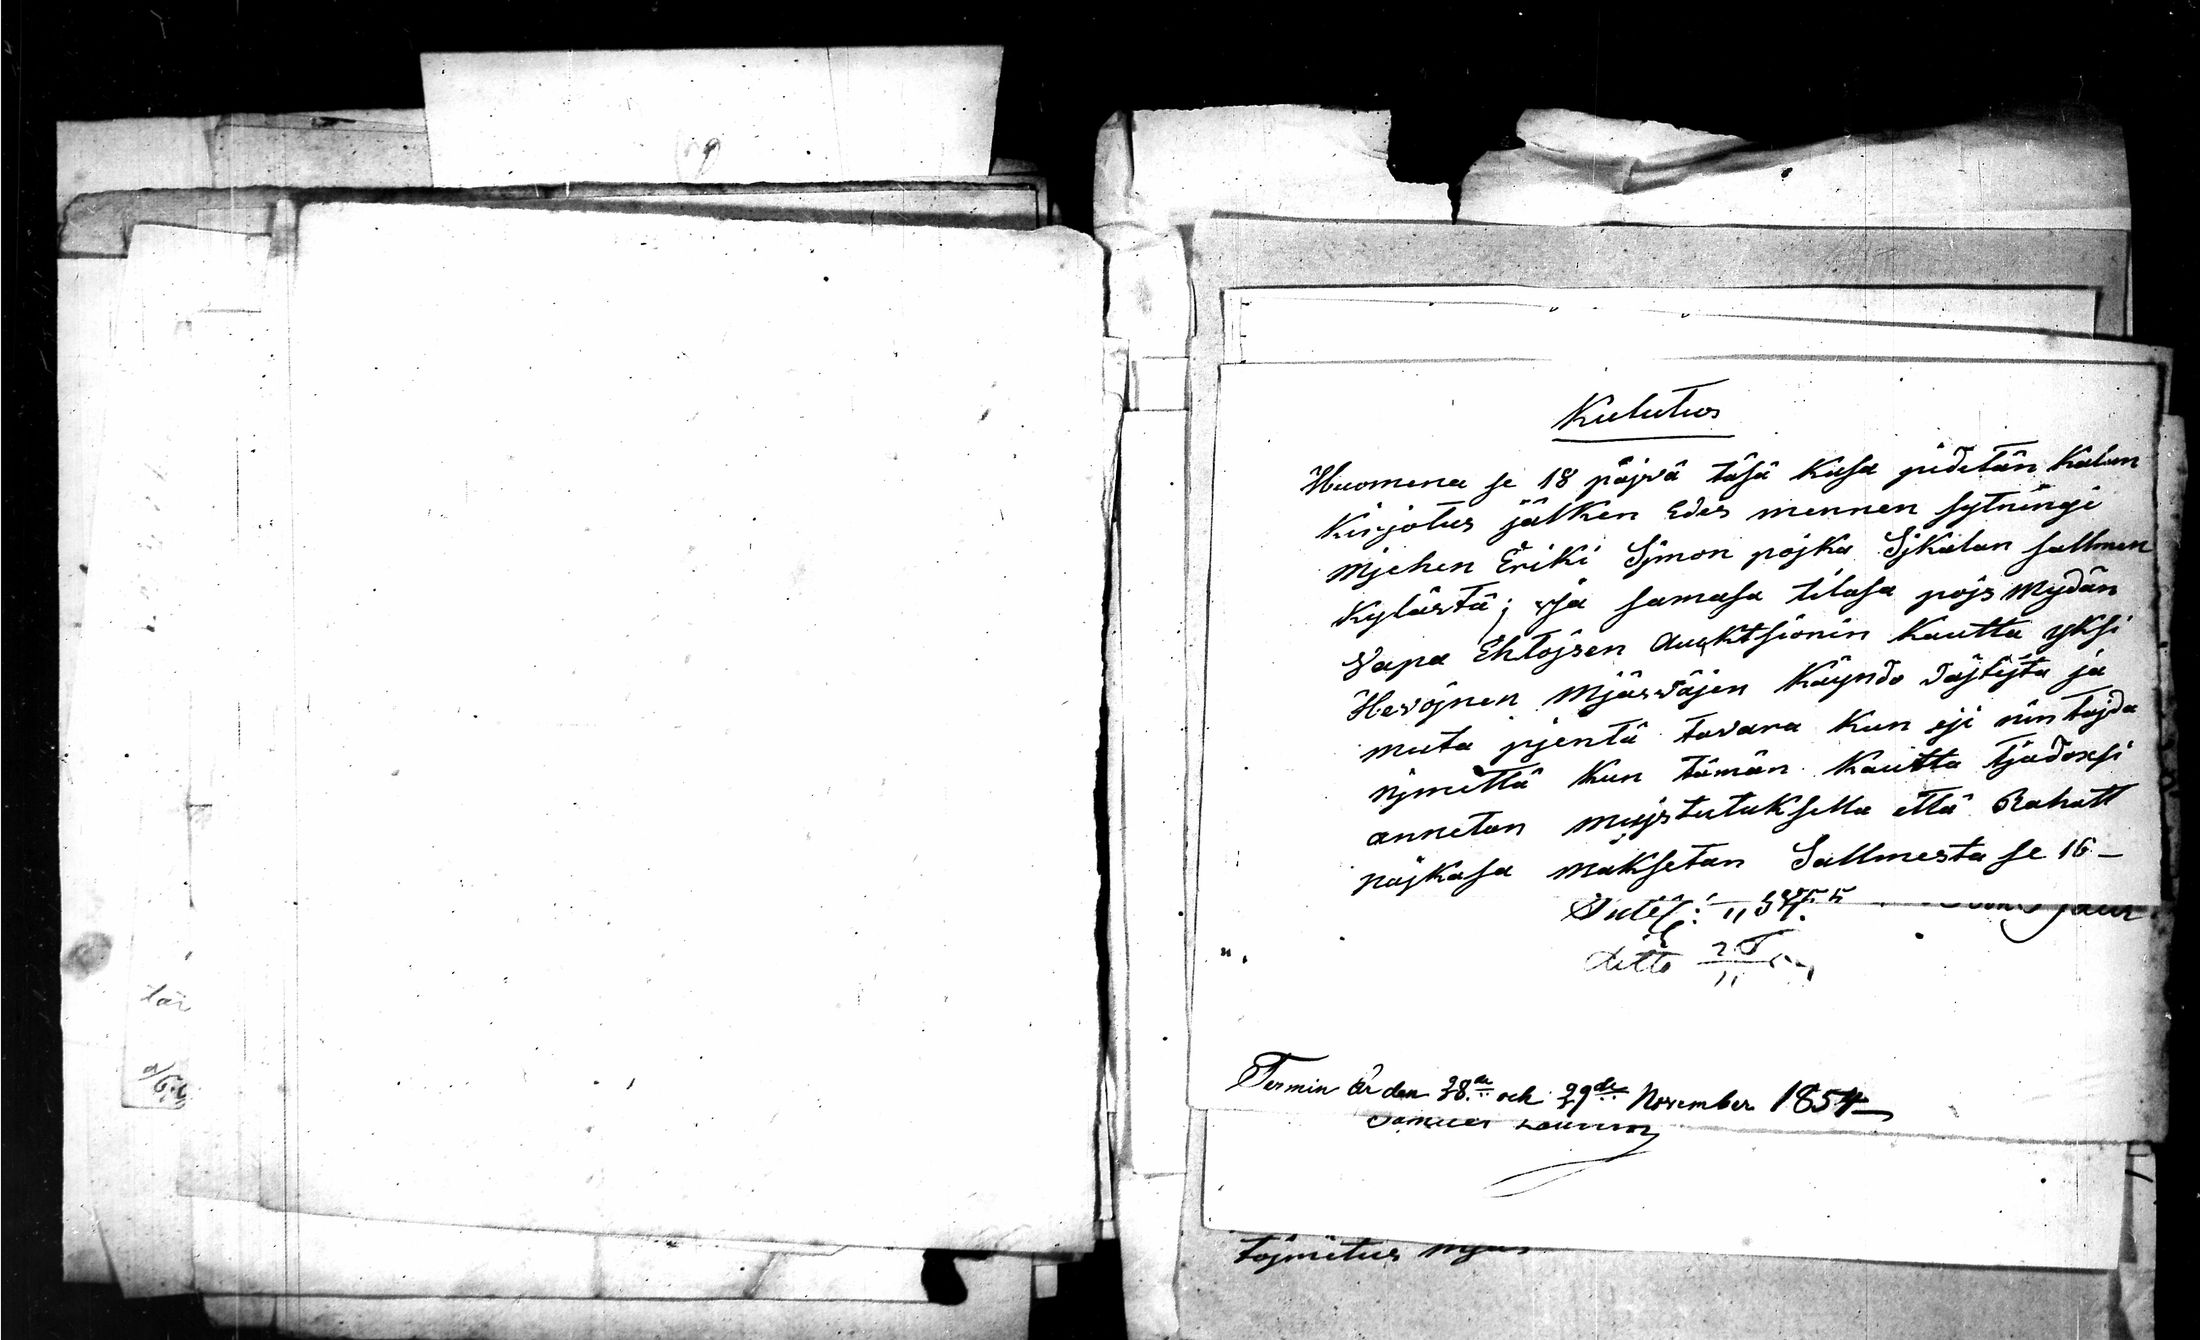 tär
Kulutus
Huomena se 18 päjvä täsä Kusa pidetän Kalun
Kirjotus jälken Edes mennen sytningi
Mjehen Eriki Sjmon pojka Sjkalan sallmen
Kylästä; ja samasa tilasa pojs Mydän
Vapa Ehtojsen Auktsionin Kautta yksi
Hevojnen Mjäsväjen Käyndo
muta pjentä tavara Kun eji nin tajda
njmittä Kun tämän Kautta Tjadoxsi
annetan mujstutuksella että Rahatt
pajkasa maksetan Sallmesta se 16 -
ditto
Termin Är den 28de och 29de November 1854
tojmitus